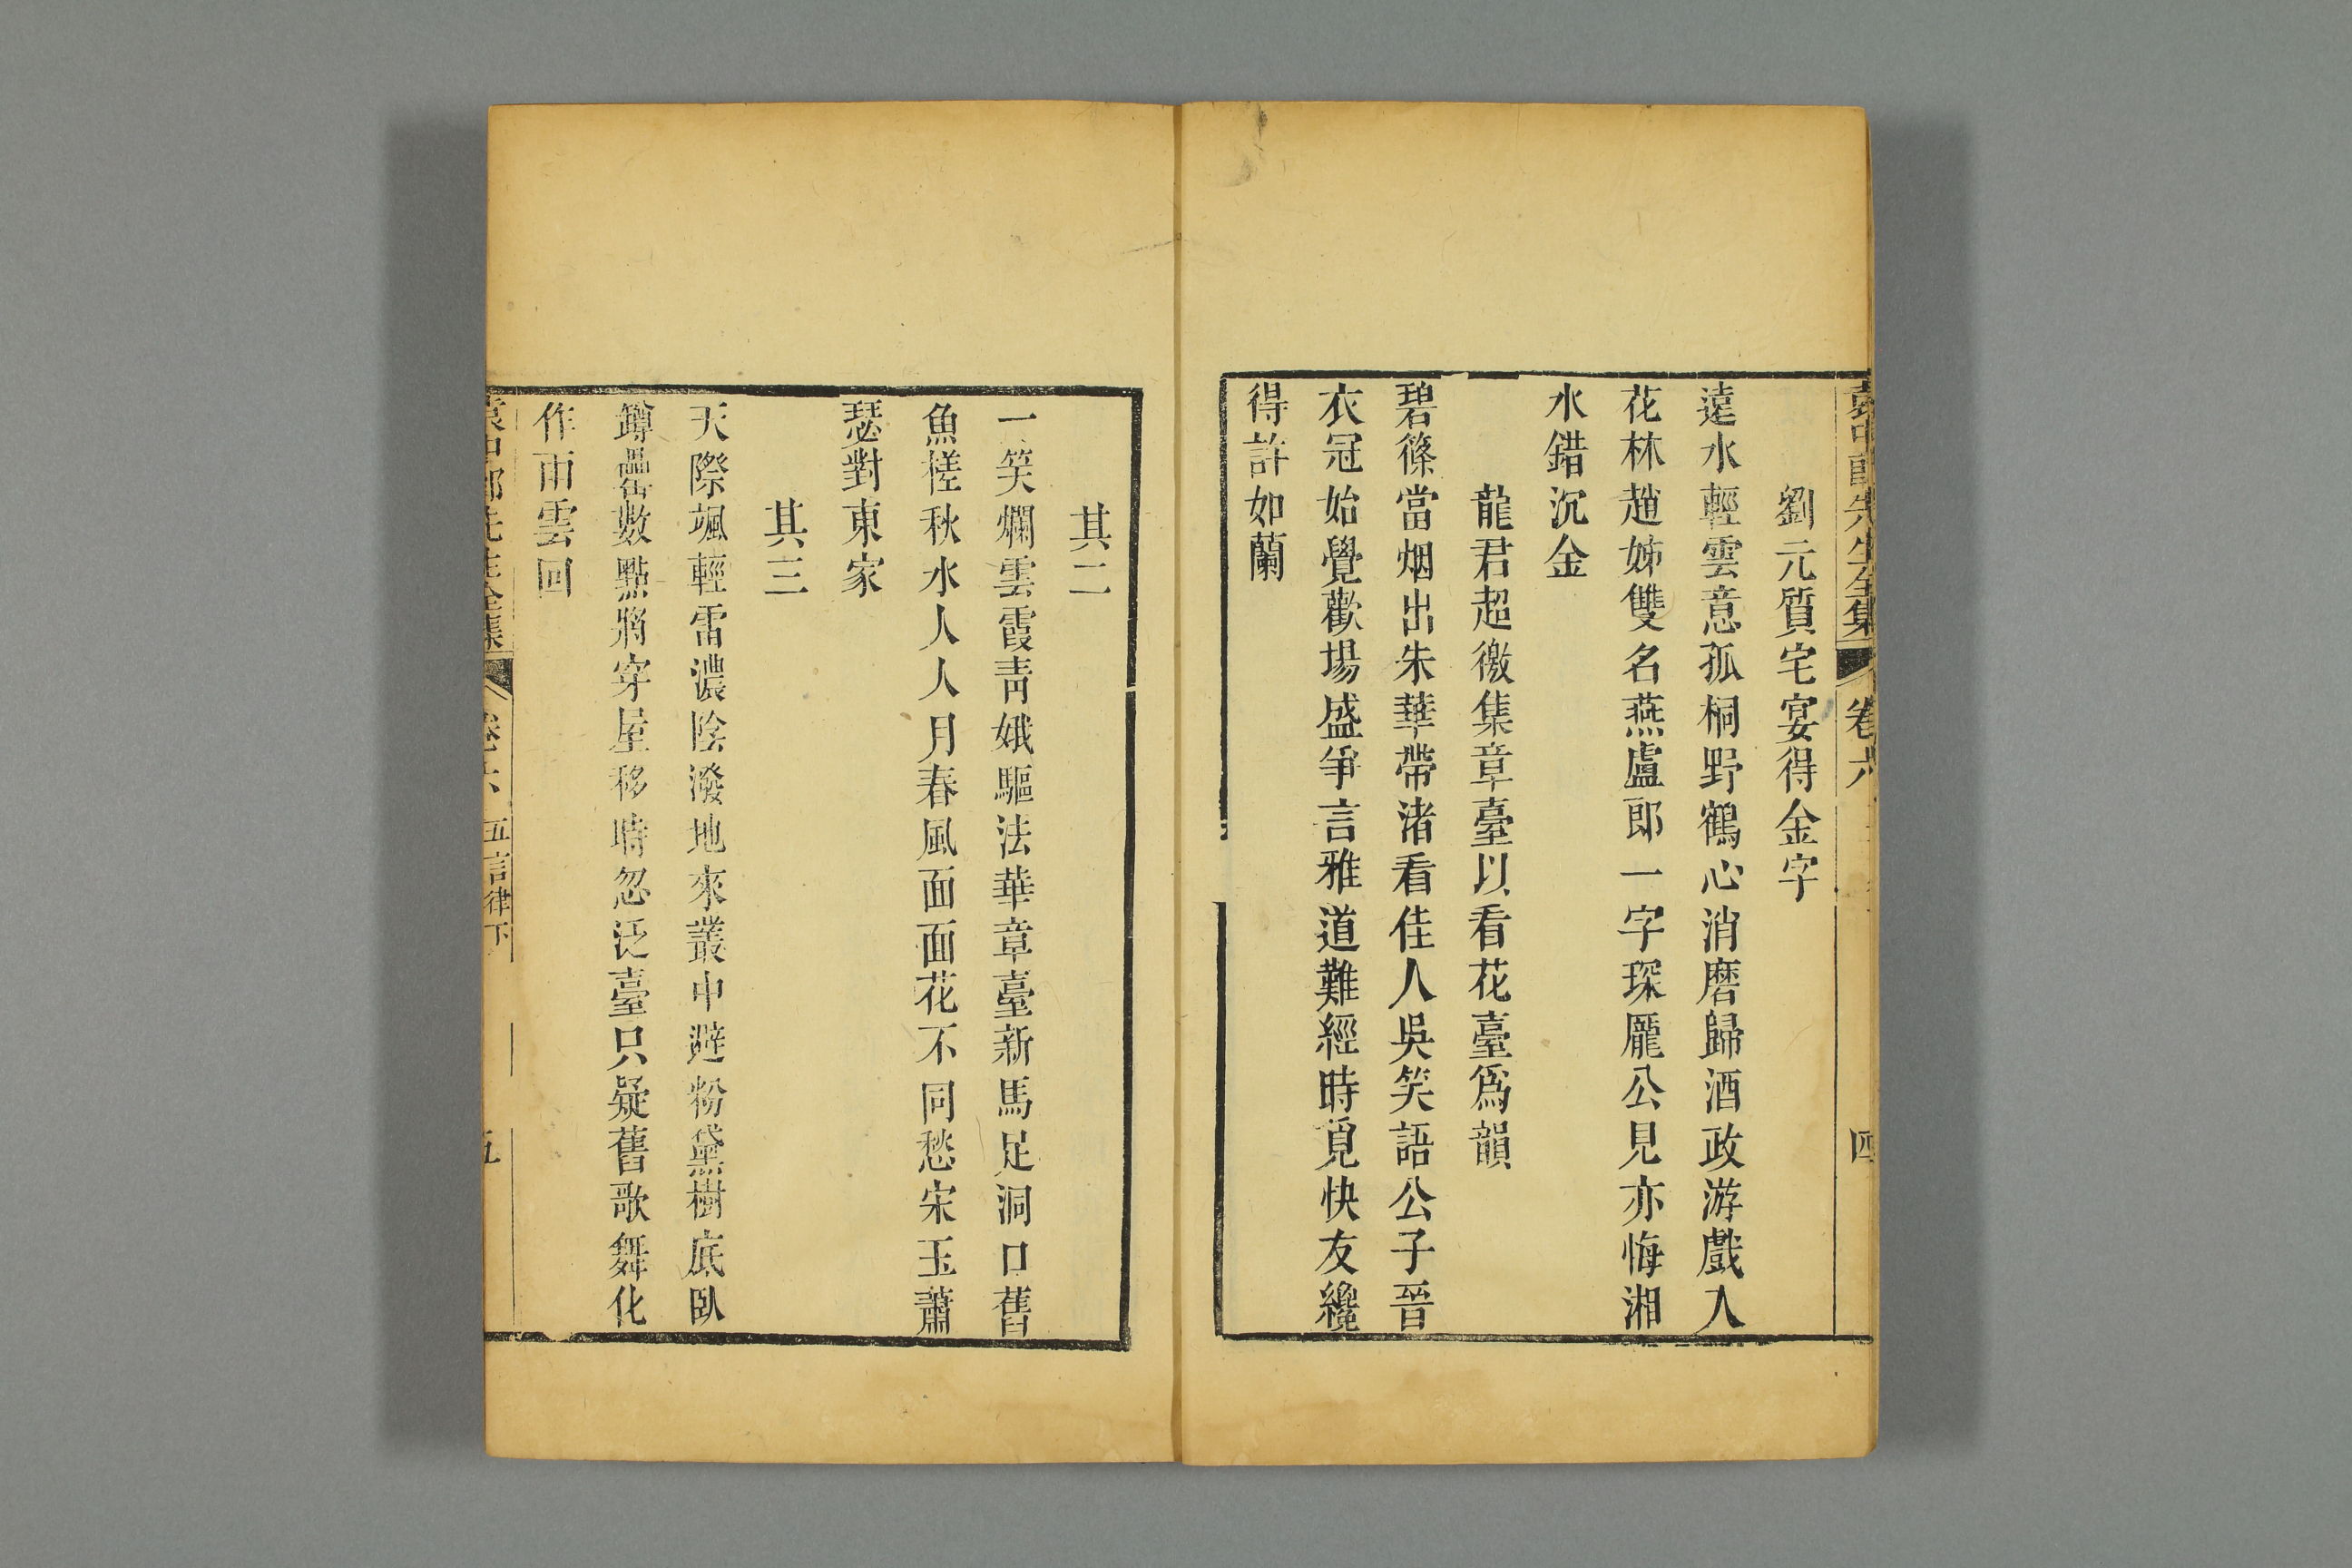 袁中郎先生全集 卷六 四
劉元質宅宴得金字
遠水輕雲意孤桐野鶴心消磨歸酒政游戲入
花林趙姊雙名燕盧郎一字琛龐公見亦悔湘
水錯沉金
龍君超徼集章臺以看花臺爲韻
碧篠當烟出朱華帶渚看佳人吳笑語公子晉
衣冠始覺歡場盛爭言雅道難經時覓快友纔
得許如蘭
其二
一笑爛雲霞靑娥驅法華章臺新馬足洞口舊
魚槎秋水人人月春風面面花不同愁宋玉蕭
瑟對東家
其三
天際颯輕雷濃陰潑地來叢中避粉黛樹底臥
罇罍數點將穿屋移時忽泛臺只疑舊歌舞化
作雨雲回
袁中郎先生全集 卷六 五言律下 五